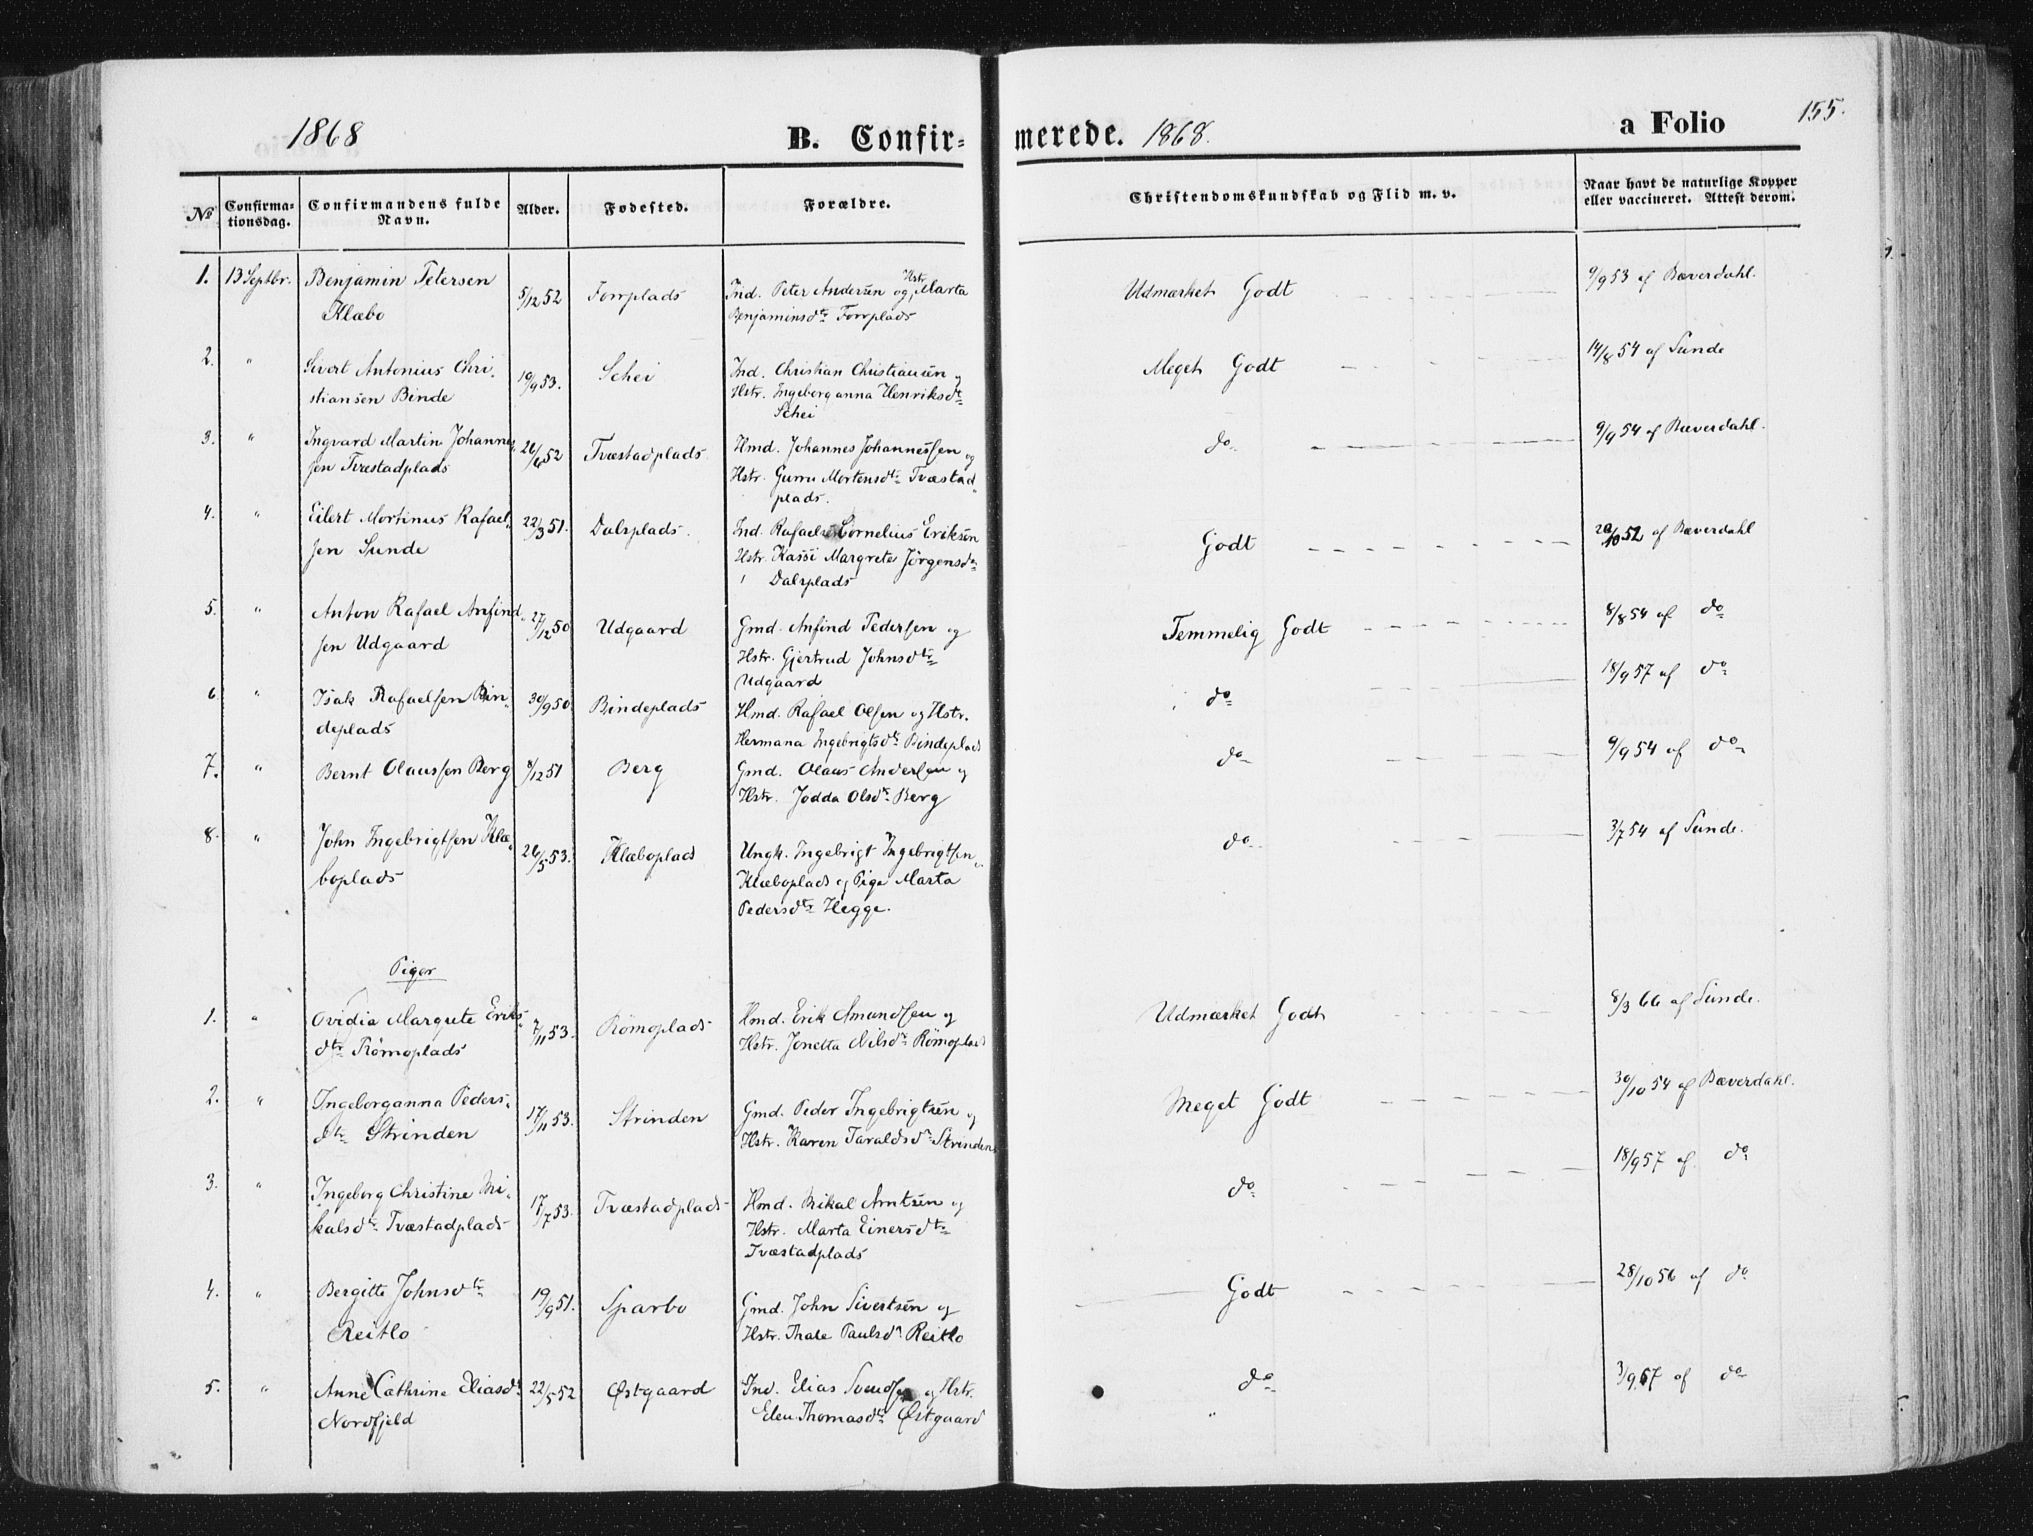 1868 B. Confir- merede. 1868. a Folio 155.
No Confirma-tionsdag. Confirmandens fulde Navn. Alder. Fødested. Forældre. Christendomskundskab og Flid m. v. Naar havt de naturlige Kopper eller vaccineret. Attest derom.
1. 13 Septbr. Benjamin Petersen 5/12 52 Forrplads Ind. Peter Andersen og Hstr. Marta Udmærket Godt 9/9 53 af Bæverdahl.
Klæbo Benjaminsdtr Forrplads
2. " Sivert Antonius Chri- 19/9 53. Schei Ind. Christian Christiansen og Meget Godt 14/8 54 af Sunde
stiansen Binde Hstr. Ingeborganna Henriksdtr
Schei
3. " Ingvard Martin Johannes- 26/6 52 Tvæstadplads Hmd. Johannes Johannessen og do 9/9 54 af Bæverdahl.
sen Tvæstadplads Hstr. Gurru Mortensdtr Tvæstad-
plads.
4. " Eilert Mortinus Rafael- 22/3 51. Dalsplads. Ind. Rafael Cornelius Eriksen Godt 20/10 52 af Bæverdahl
sen Sunde Hstr. Kassi Margrete Jörgensdtr
Dalsplads
5. " Anton Rafael Anfind- 27/12 50 Udgaard Gmd. Anfind Pedersen og Temmelig Godt 8/8 54 af do
sen Udgaard Hstr. Gjertrud Johnsdtr
Udgaard
6 " Isak Rafaelsen Bin- 30/9 50 Bindeplads Hmd. Rafael Olsen og Hstr. do 18/9 57 af do
deplads Hermana Ingebrigtsdtr Bindeplads
7. " Bernt Olaussen Berg 8/12 51 Berg Gmd. Olaus Andersen og do 9/9 54 af do
Hstr. Jodda Olsdtr Berg
8. " John Ingebrigtsen Klæ- 26/5 53. Klæboplads Ungk. Ingebrigt Ingebrigtsen do 3/7 54 af Sunde.
boplads Klæboplads og Pige Marta
Pedersdtr Hegge.
Piger
1. " Ovidia Margrete Eriks- 7/11 53. Römoplads Hmd. Erik Amundsen og Udmærket Godt 8/3 66 af Sunde.
dtr Römoplads Hstr. Jonetta Nilsdtr Römoplads
2. " Ingeborganna Peders- 17/11 53. Strinden Gmd. Peder Ingebrigtsen og Meget Godt 30/10 54 af Bæverdahl.
dtr Strinden Hstr. Karen Taraldsdtr Strinden
3. " Ingeborg Christine Mi- 17/7 53. Tvæstadplads Hmd. Mikal Arntsen og do 18/9 57 af do
kalsdtr Tvæstadplads Hstr. Marta Einersdtr
Tvæstadplads
4. " Bergitte Johnsdtr 19/9 51. Sparbo Gmd. John Sivertsen og Godt 28/10 56 af do
Reitlo Hstr. Thale Paulsdtr Reitlo
5. " Anne Cathrine Eliasdtr 22/5 52 Østgaard Ind. Elias Svendsen og Hstr. do 3/9 57 af do
Nordfjeld Elen Thomasdtr Østgaard